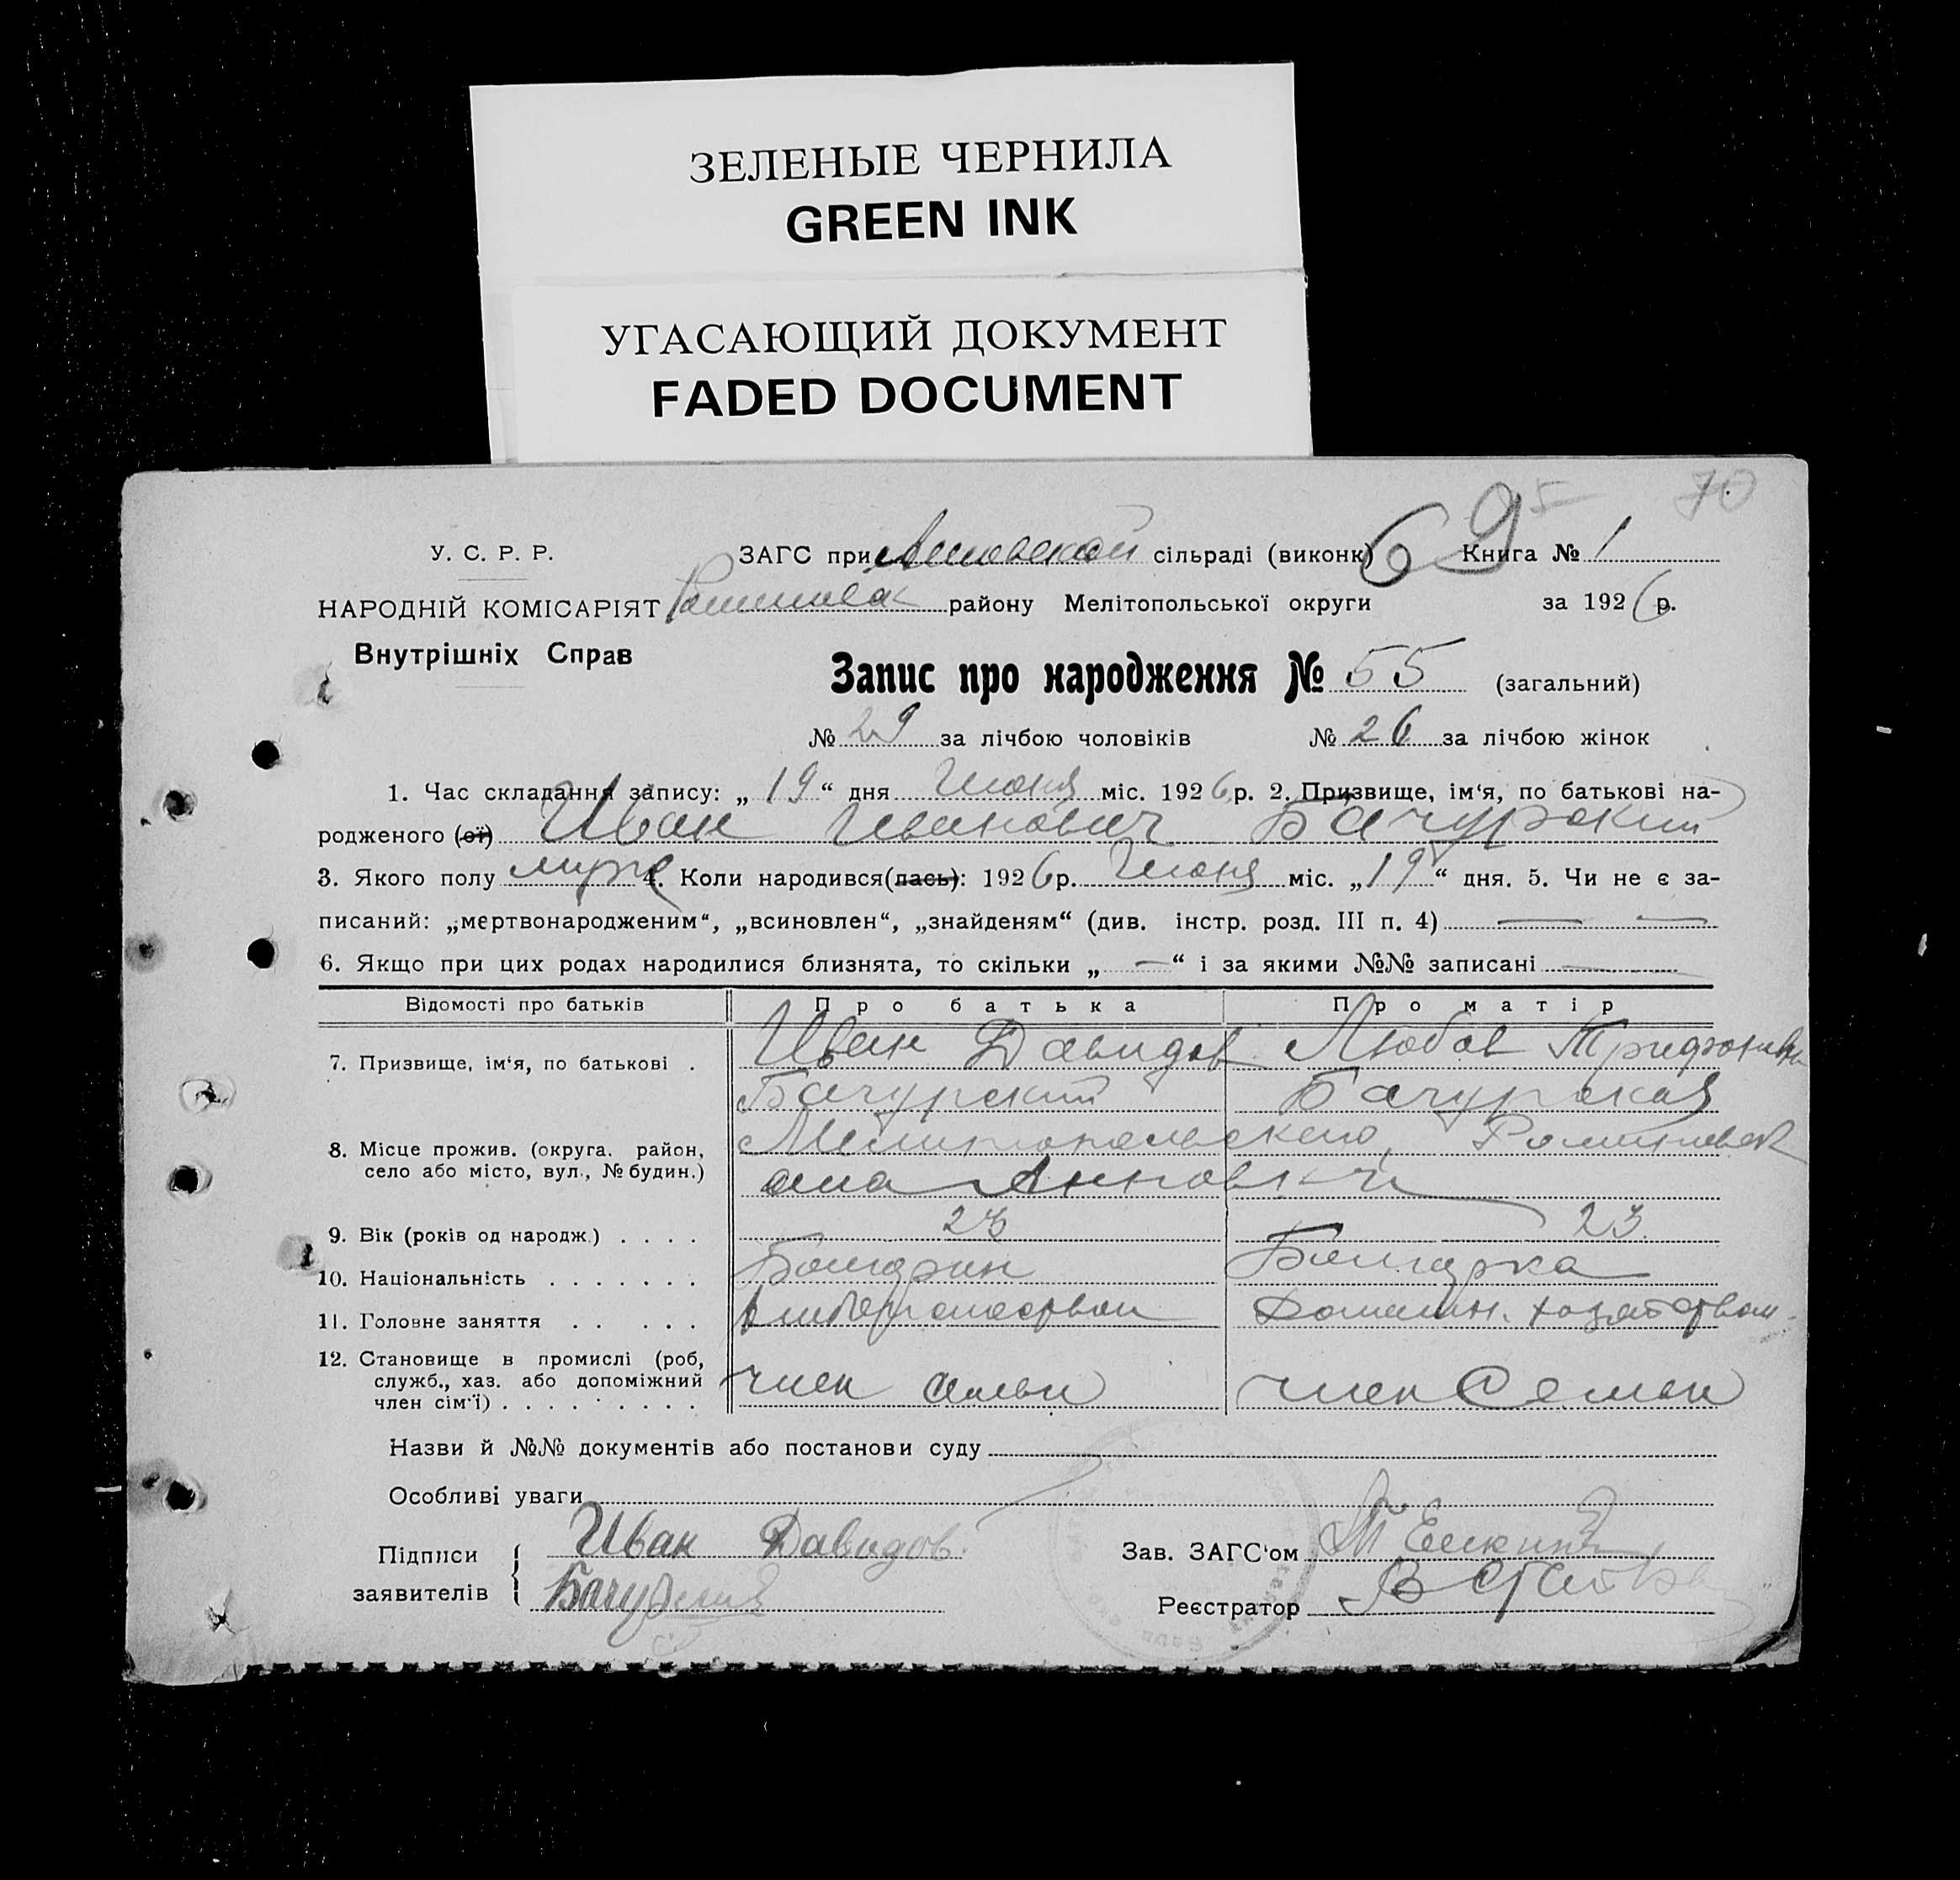 ЗЕЛЕНЫЕ ЧЕРНИЛА
GREEN INK
УГАСАЮЩИЙ ДОКУМЕНТ
FADED DOCUMENT
70
69
У. С. Р. Р.
ЗАГС при сільраді (виконк) Книга № 1
НАРОДНІЙ КОМІСАРІЯТ району Мелітопольської округи за 1926 р.
Внутрішніх Справ
Запис про народження № 55 (загальний)
№ 29 за лічбою чоловіків № 26 за лічбою жінок
1. Час складання запису: „19“ дня Июня міс. 1926 р. 2. Призвище, ім‘я, по батькові на-
родженого (ої) Иван Иванович Бачурский
3. Якого полу муж 4. Коли народився(лась): 1926 р. Июня міс. „19“ дня. 5. Чи не є за-
писаний: „мертвонародженим“, „всиновлен“, „знайденям“ (див. інстр. розд. III п. 4) — —
6. Якщо при цих родах народилися близнята, то скільки „ — “ і за якими №№ записані —
Відомості про батьків Про батька Про матір
7. Призвище, ім‘я, по батькові . Иван Давидов Любов
Бачурский Бачурская
8. Місце прожив. (округа. район, Мелитопольского,
село або місто, вул., № будин.) села Анновки
9. Вік (років од народж.) . . . . 23 23.
10. Національність . . . . . . . Болгарин Болгарка
11. Головне заняття . . . . . Домашн. хозяйством
12. Становище в промислі (роб,
служб., хаз. або допоміжний член семьи член семьи
член сім‘ї) . . . . . . . . .
Назви й №№ документів або постанови суду
Особливі уваги
Підписи Иван Давидов. Зав. ЗАГС‘ом
заявителів Бачурский Реєстратор